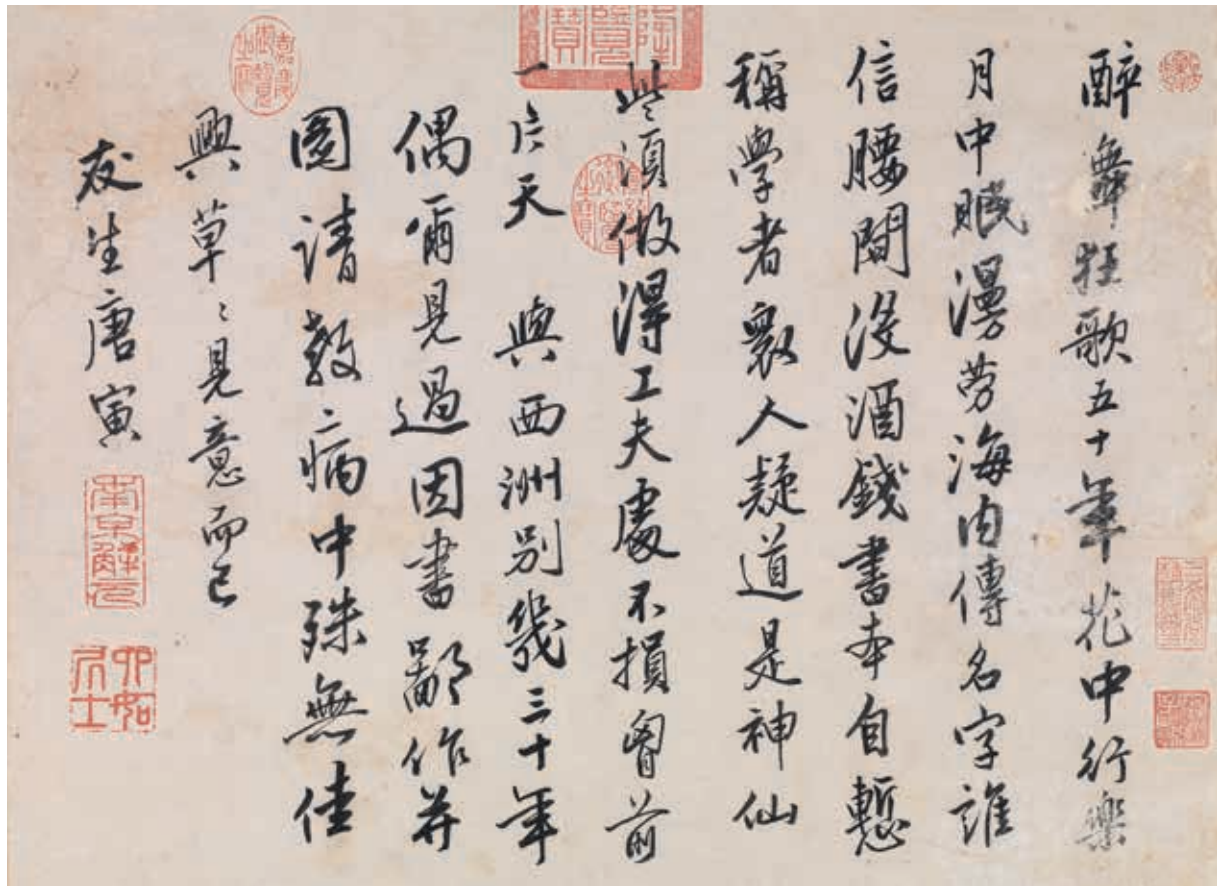 醉舞狂歌五十年花中行樂
月中眠漫勞海內傳名字誰
信腰間沒酒錢書本自慙
稱學者衆人疑道是神仙
些須做得工夫處不損胷前
一片天 與西洲別幾三十年
偶爾見過因書鄙作并
圖請教〻病中殊無佳
興草〻見意而已
友生唐寅
南京解元
六如居士
嘉慶御覽之寶